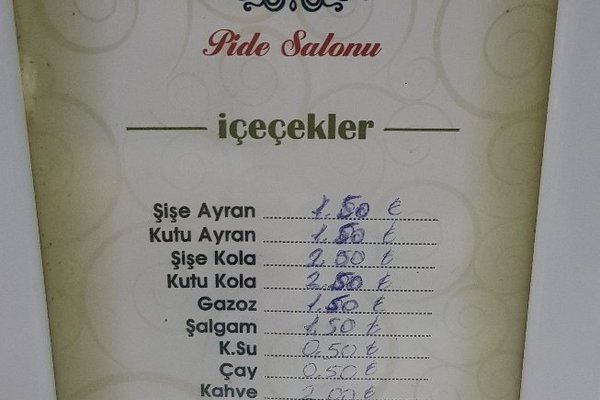 Pide Salonu
içeçekler
Şişe Ayran 1.50 ₺
Kutu Ayran 1.50 ₺
Şişe Kola 2.50 ₺
Kutu Kola 2.50 ₺
Gazoz 1.50 ₺
Şalgam 1.50 ₺
K.Su 0.50 ₺
Çay 0.50 ₺
Kahve 2.00 ₺